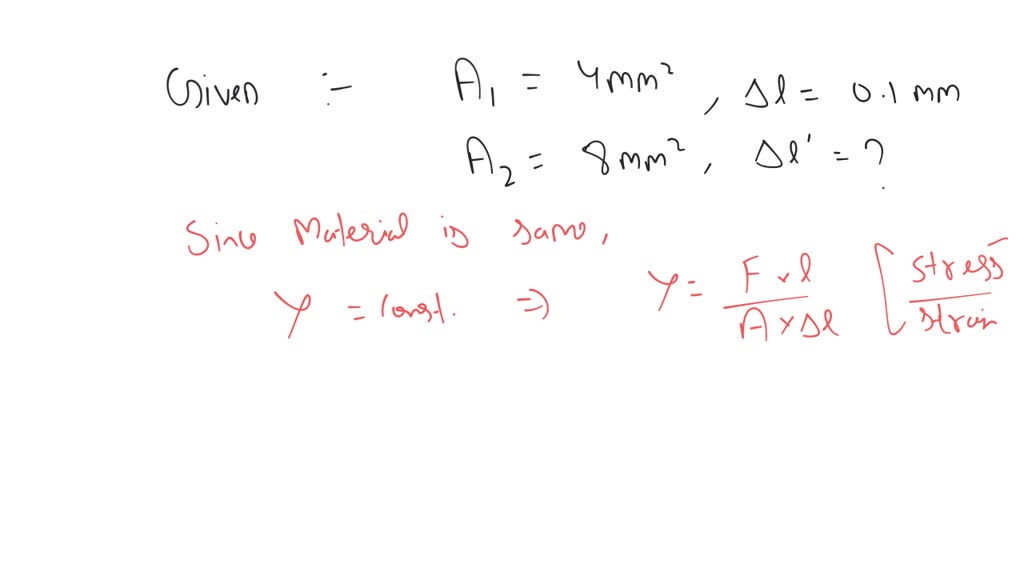 Given :- A₁ = 4mm² , Δl = 0.1 mm
A₂ = 8mm² , Δl' = ?
Since Material is same,
Y = const. ⇒ Y = F × l / A × Δl [ stress / strain